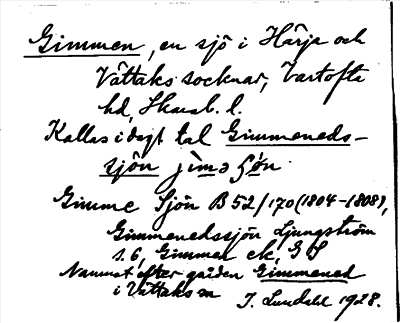 Gimmen, en sjö i Härja och
Vättaks socknar, Vartofta
hd, Skarab. l.
Kallas i dagl tal Gimmeneds-
sjön
Gimme Sjön B 52/170 (1804-1808),
Gimmenedssjön Ljungström
s. 6, Gimmen ek, G S
Namnet efter gården Gimmened
i Vättaks sn
J. Lundahl 1928.